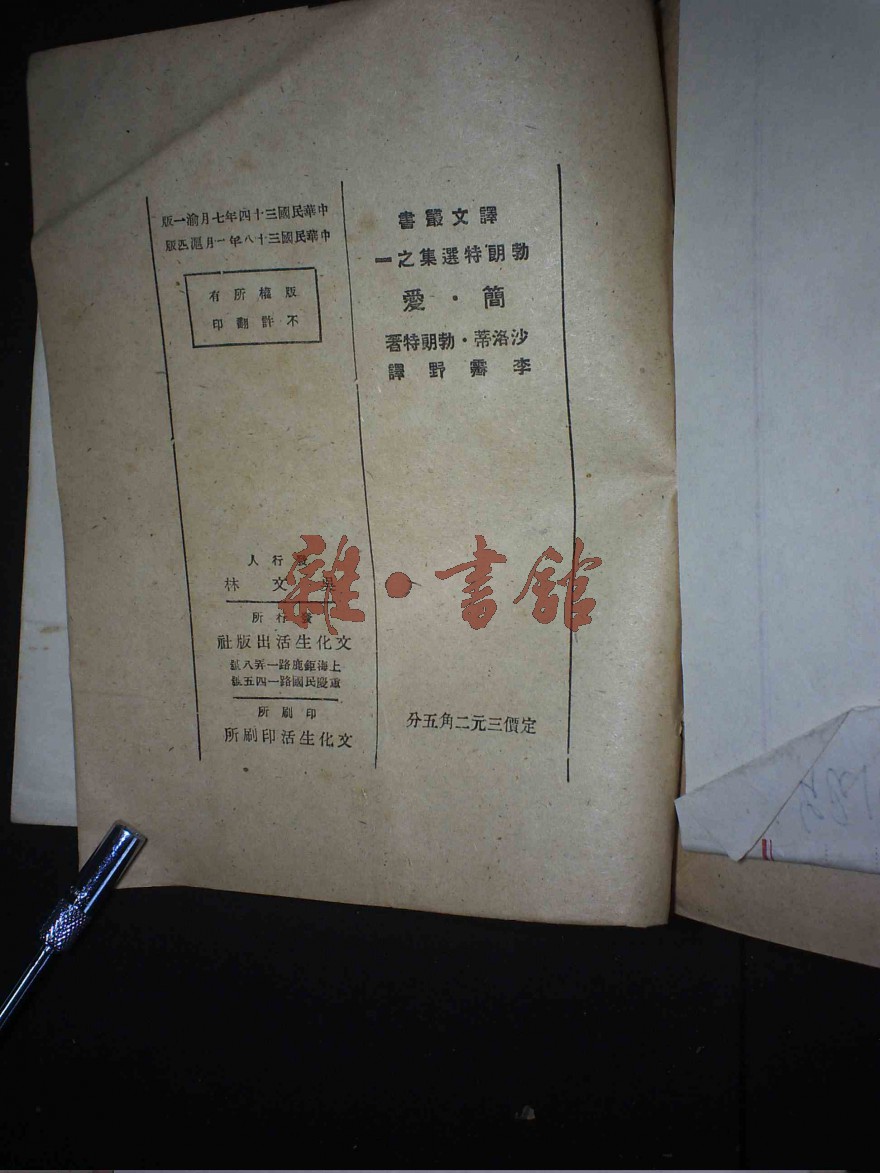 譯文叢書
勃朗特選集之一
簡·愛
沙洛蒂·勃朗特著
李霽野譯
定價三元二角五分
中華民國三十四年七月渝一版
中華民國三十八年一月滬四版
版權所有
不許翻印
發行人
吳文林
發行所
文化生活出版社
上海鉅鹿路一弄八號
重慶民國路一四五號
印刷所
文化生活印刷所
雜·書館